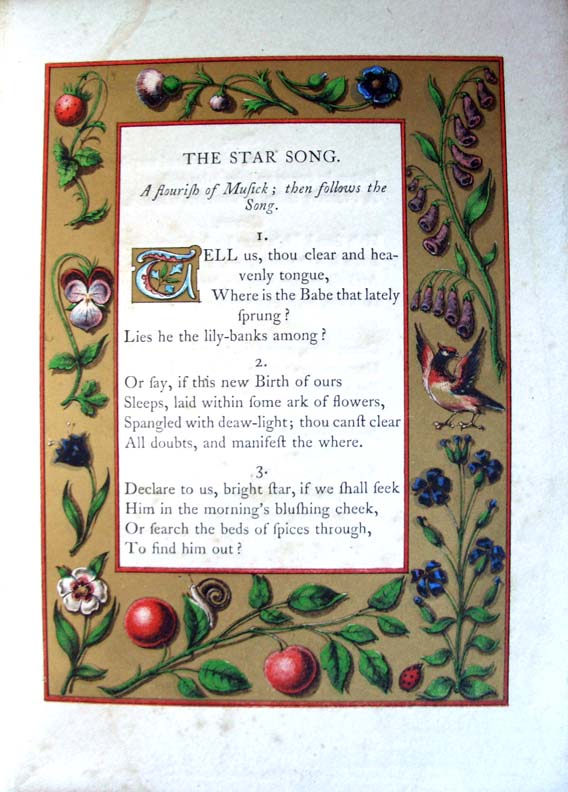 THE STAR SONG.
A flouriſh of Muſick; then follows the
Song.
1.
TELL us, thou clear and hea-
venly tongue,
Where is the Babe that lately
ſprung?
Lies he the lily-banks among?
2.
Or ſay, if this new Birth of ours
Sleeps, laid within ſome ark of flowers,
Spangled with deaw-light; thou canſt clear
All doubts, and manifeſt the where.
3.
Declare to us, bright ſtar, if we ſhall ſeek
Him in the morning's bluſhing cheek,
Or ſearch the beds of ſpices through,
To find him out?